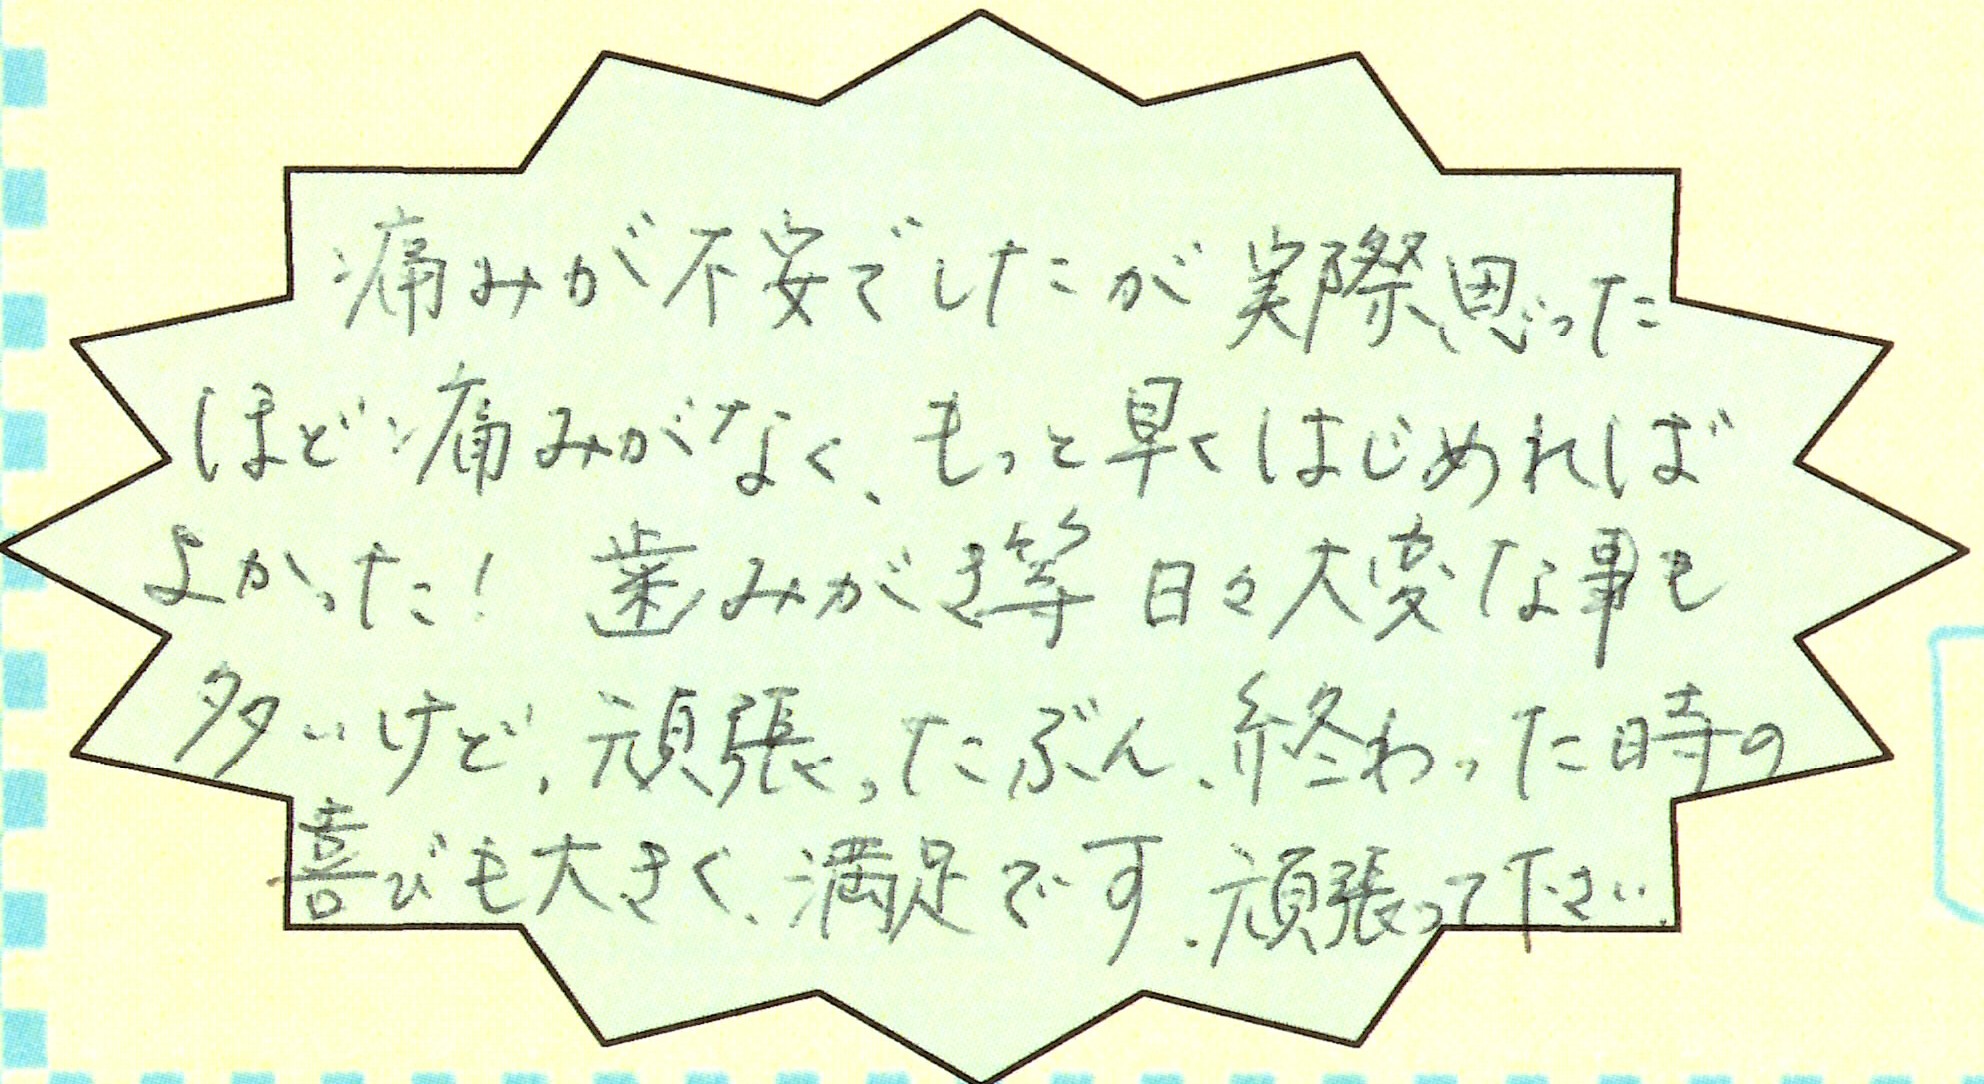 痛みが不安でしたが実際思った
ほど痛みがなく、もっと早くはじめれば
よかった! 歯みがき等 日々大変な事も
多いけど、頑張ったぶん、終わった時の
喜びも大きく、満足です。頑張って下さい。